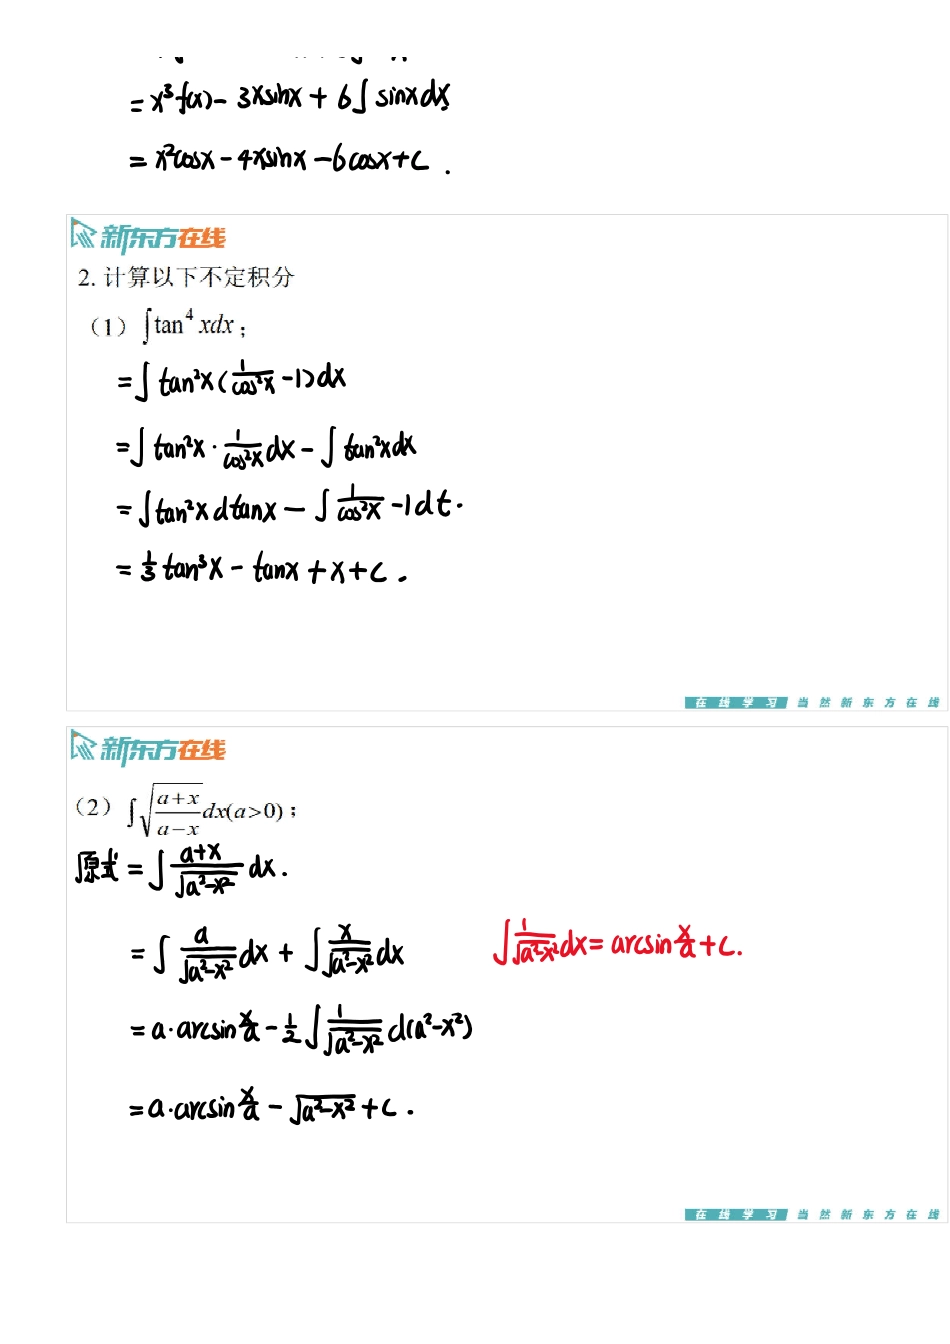 = x³f(x) - 3xsinx + 6∫ sinxdx
= x²cosx - 4xsinx - 6cosx + C .
新东方在线
2. 计算以下不定积分
（1）∫tan⁴ xdx；
= ∫ tan²x (1/cos²x - 1) dx
= ∫ tan²x · 1/cos²x dx - ∫ tan²xdx
= ∫ tan²x dtanx — ∫ 1/cos²x - 1 dt .
= 1/3 tan³x - tanx + x + C .
在线学习 当然新东方在线
新东方在线
（2）∫√((a+x)/(a−x)) dx(a>0)；
原式 = ∫ (a+x)/√(a²-x²) dx .
= ∫ a/√(a²-x²) dx + ∫ x/√(a²-x²) dx ∫ 1/√(a²-x²) dx = arcsin x/a + C.
= a·arcsin x/a - 1/2 ∫ 1/√(a²-x²) d(a²-x²)
= a·arcsin x/a - √(a²-x²) + C .
在线学习 当然新东方在线